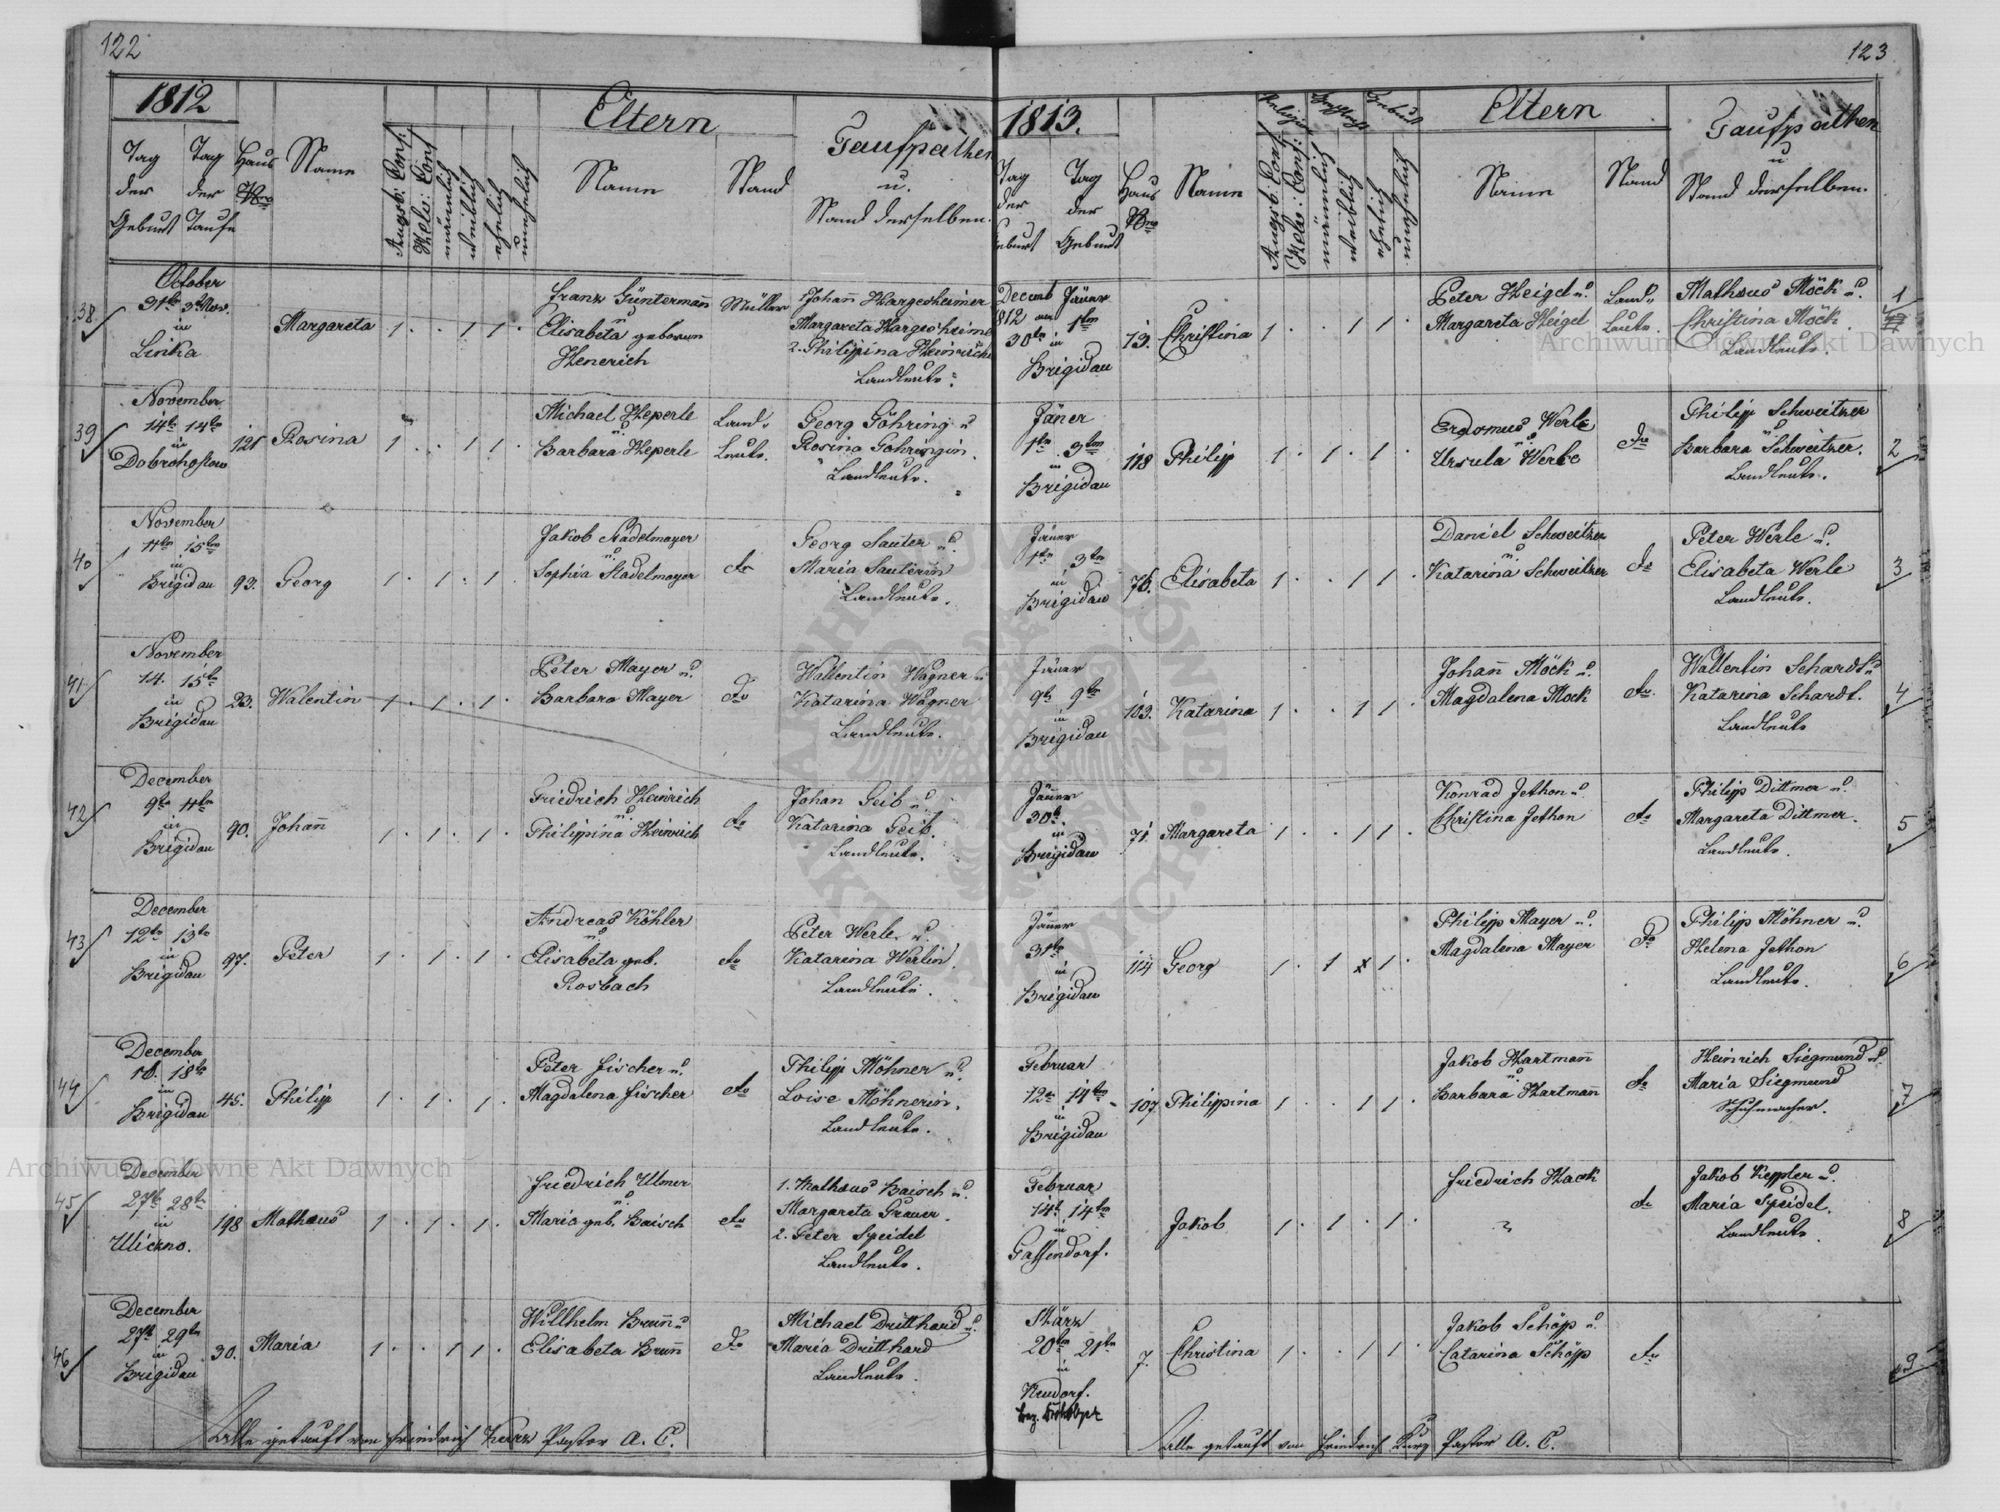 122
1812
Eltern
Taufpathen
u.
Stand derselben.
Tag der Geburt
Tag der Taufe
Haus Nro
Name
Augsb: Conf:
Helv: Conf
männlich
weiblich
ehelich
unehelich
Name
Stand
38
October
31ten 3t Nov.
in
Linka
Margareta
1 . . 1 1 .
Franz Güntermann
u.
Elisabeta geboren
Henerich
Müller
1 Johann Hargesheimer
Margareta Hargesheime
2. Philippina Heinrich
Landleute.
39
November
14t 14ten
in
Dobrohostow
121
Rosina
1 . . 1 1 .
Michael Heperle
u.
Barbara Heperle
Land-
Leute.
Georg Göhring u
Rosina Gohringin.
Landleute.
40
November
11ten 15ten
in
Brigidau
93.
Georg
1 . 1 . 1 .
Jakob Stadelmayer
u.
Sophia Stadelmayer
do
Georg Sauter u.
Maria Sauterin
Landleute.
41
November
14. 15te
in
Brigidau
23.
Walentin
1 . 1 . 1 .
Peter Mayer u.
Barbara Mayer
do
Wallentin Wagner u
Katarina Wagner
Landleute.
42
December
9ten 11ten
in
Brigidau
90.
Johann
1 . 1 . 1 .
Friedrich Heinrich
u.
Philippina Heinrich
do
Johan Geib u.
Katarina Geib.
Landleute.
43
December
12te 13te
in
Brigidau
97.
Peter
1 . 1 . 1 .
Andreas Köhler
u.
Elisabeta geb.
Rosbach
do
Peter Werle u.
Katarina Werlin
Landleute.
44
December
16. 18te
in
Brigidau
45.
Philip
1 . 1 . 1 .
Peter Fischer u.
Magdalena Fischer
do
Philipp Möhner u.
Loise Möhnerin.
Landleute.
45
December
27t 28te
in
Uliczno.
198
Mathæus
1 . 1 . 1 .
Friedrich Ulmer
u.
Maria geb. Baisch
do
1. Mathæus Baisch u.
Margareta Grauer.
2. Peter Speidel
Landleute.
46
December
27t 29ten
in
Brigidau
30.
Maria
1 . . 1 1 .
Willhelm Brunn u
Elisabeta Brunn
do
Michael Dritthard u.
Maria Dritthard
Landleute.
Alle getauft von Friedrich Kurz Pastor A. C.
123
1813.
Religion
Geschlecht
Geburt
Eltern
Taufpathen
u
Stand derselben.
Tag der Geburt
Tag der Geburt
Haus Nro
Name
Augsb: Conf:
Helv: Conf:
männlich
weiblich
ehelich
unehelich
Name
Stand
Decemb Jäner
1812 am 1ten
30ten in
Brigidau
13.
Christina
1 . . 1 1 .
Peter Heigel u.
Margareta Heigel
Land-
Leute.
Mathæus Möck u.
Christina Möck.
Landleute.
1
Jäner
1ten 3ten
in
Brigidau
118
Philip
1 . 1 . 1 .
Erasmus Werle
u.
Ursula Werle
do
Philipp Schweitzer
u.
Barbara Schweitzer.
Landleute.
2
Jäner
1ten 3ten
in
Brigidau
76.
Elisabeta
1 . . 1 1 .
Daniel Schweitzer
u.
Katarina Schweitzer
do
Peter Werle u.
Elisabeta Werle
Landleute.
3
Jäner
9te 9te
in
Brigidau
103.
Katarina
1 . . 1 1 .
Johann Möck u.
Magdalena Mock
do.
Wallentin Schardt u
Katarina Schardt.
Landleute
4
Jäner
30t.
in
Brigidau
71.
Margareta
1 . . 1 1 .
Konrad Jethon u.
Christina Jethon
do
Philipp Dittmer u.
Margareta Dittmer.
Landleute.
5
Jäner
31te
in
Brigidau
114
Georg
1 . 1 x 1 .
Philipp Mayer u.
Magdalena Mayer
do
Philip Möhner u.
Helena Jethon
Landleute.
6
Februar
12te 14ten
in
Brigidau
107
Philippina
1 . . 1 1 .
Jakob Hartmann
u.
Barbara Hartmann
do
Heinrich Siegmund u.
Maria Siegmund
Schuhmacher.
7
Februar
14t. 14ten
in
Gassendorf.
Jakob
1 . 1 . 1 .
Friedrich Hack
do
Jakob Keppler u.
Maria Speidel.
Landleute.
8
März
20ten 21te
in
Neudorf.
7.
Christina
1 . . 1 1 .
Jakob Schöpp u.
Catarina Schöpp
do
9
Alle getauft von Friedrich Kurz Pastor A. C.
Archiwum Główne Akt Dawnych
Archiwum Główne Akt Dawnych